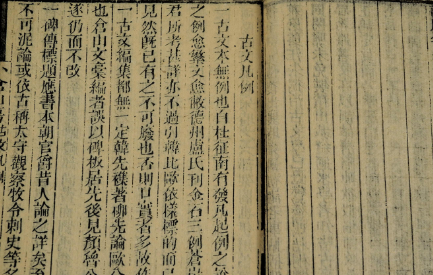 古文凡例
一古文本無例也自杜征南有發凡起例之
之例愈繁文愈敝德州盧氏刊金石三例蒼
君所考甚詳亦不過引韓比歐依樣標的而已
見然旣已有之不可廢也否則口實者多故作
一古文編集都無一定韓先襍著柳先論歐
也倉山文稾編者誤以碑板居先後見顏魯
遂仍而不改
一碑傳標題應書本朝官爵昔人論之詳矣至
不可泥論或依古稱太守觀察牧令刺史等